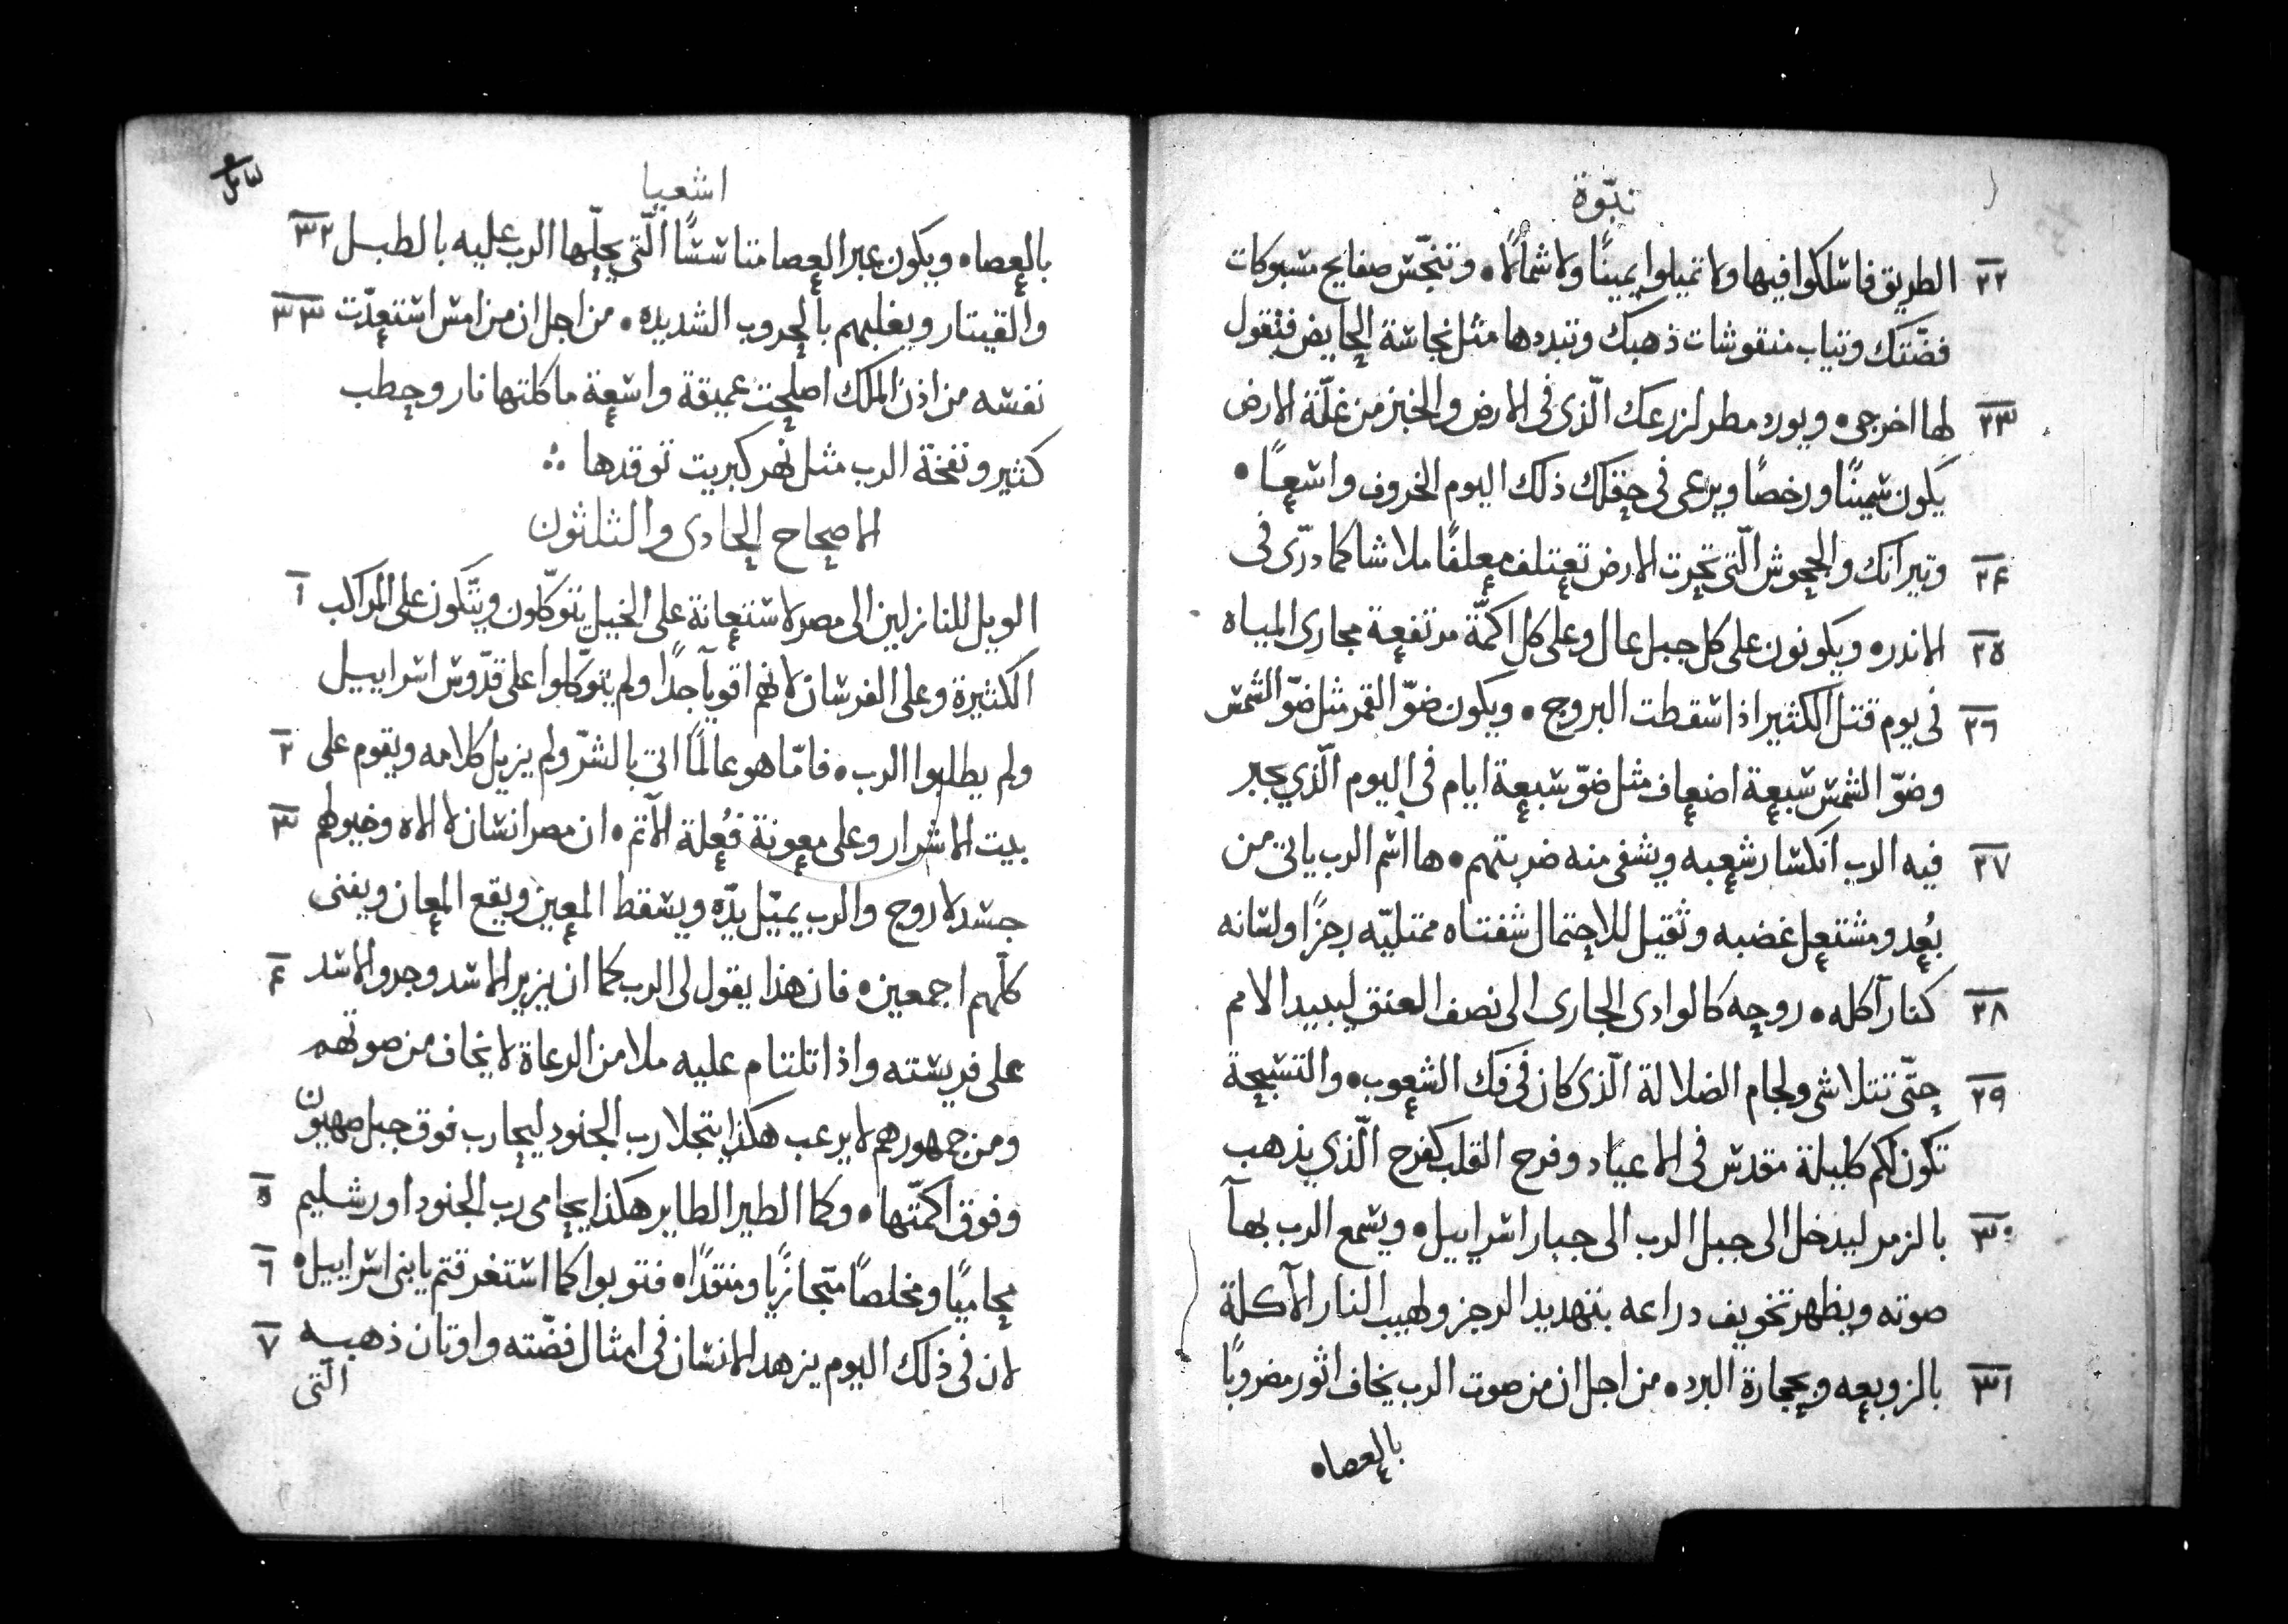 نبّوة
٢٢ الطريق فاسلكوا فيها ولا تميلوا يمينًا ولا شمالًا٠ وتنجّس صفايح مسبوكات
فضّتك وتياب منقوشات ذهبك وتبددها مثل نجاسة الحايض فتقول
٢٣ لها اخرجى٠ ويورد مطر لزرعك الّذى فى الارض والخبز من غلّة الارض
يكون سمينًا ورخصًا ويرعى فى حقلك ذلك اليوم الخروف واسعًا٠
٢٤ وتيرانك والجحوش الّتى تحرت الارض تعتلف معلفًا ملاشا كما درّى فى
٢٥ الاندر٥ ويكونون على كل جبل عال وعلى كل اكمّة مرتفعة مجارى المياه
٢٦ فى يوم قتل الكثير اذا سقطت البروج٠ ويكون ضوّ القمر مثل ضوّ الشمس
وضوّ الشمس سبعة اضعاف مثل ضوّ سبعة ايام فى اليوم الّذي يجبر
٢٧ فيه الرب انكسار شعبه ويشفى منه ضربتهم٠ ها اسم الرب ياتى من
بُعد ومشتعل غضبه وثقيل للاحتمال شفتاه ممتليّه رجزًا ولسانه
٢٨ كنار آكله٠ روحه كالوادى الجارى الى نصف العنق ليبيد الامم
٢٩ حتّى تتلاشى ولجام الضلالة الّذى كان فى فك الشعوب٠ والتسبيحة
تكون لكم كليلة مقدس فى الاعياد وفرح القلب كفرح الّذي يذهب
٣٠ بالزمر ليدخل الى جبل الرب الى جبار اسراييل٠ ويسمع الرب بهآ
صوته ويظهر تخويف دراعه بتهديد الرجز ولهيب النار الآكلة
٣١ بالزوبعه وبحجارة البرد٠ من اجل ان من صوت الرب يخاف اثور مضروبًا
بالعصا٥
اشعيا
بالعصا٥ ويكون عبر العصا متاسسًا الّتى يحلّها الرب عليه بالطبل ٣٢
والقيتار ويغلبهم بالحروب الشديده٠ من اجل ان من امس استعدّت ٣٣
نفسه من اذن الملك اصلحت عميقة واسعة ماكلتها نار وحطب
كثير ونفخة الرب مثل نهر كبريت توقدها
الاصحاح الحادى والثلثون
الويل للنازلين الى مصر لاستعانة على الخيل يتوكّلون ويتّكون على المراكب ١
الكثيرة وعلى الفرسان لانهم اقويآ جدًا ولم يتوكّلوا على قدّوس اسراييل
ولم يطلبوا الرب٠ فامّا هو عالمًا اتى بالشرّ ولم يزيل كلامه ويقوم على ٢
بيت الاشرار وعلى معونة فُعلة الآتم٠ ان مصر انسان لا الاه وخيولهم ٣
جسد لا روح والرب يميّل يدّه ويسقط المعين ويقع المعان ويفنى
كلّهم اجمعين٠ فان هذا يقول لى الرب كما ان يزير الاسد وجرو الاسد ٤
على فريسته واذا تلتام عليه ملا من الرعاة لا يخاف من صوتهم
ومن جمهورهم لا يرعب هكذا يتجلا رب الجنود ليحارب فوق جبل صهيون
وفوق اكمّتها٠ وكما الطير الطاير هكذا يحامى رب الجنود اورشليم ٥
محاميًا ومخلصًا متجازيًا ومنقذًا٠ فتوبوا كما استغرقتم يا بنى اسراييل٠ ٦
لان فى ذلك اليوم يزهد الانسان فى امثال فضّته واوتان ذهبه ٧
الّتى